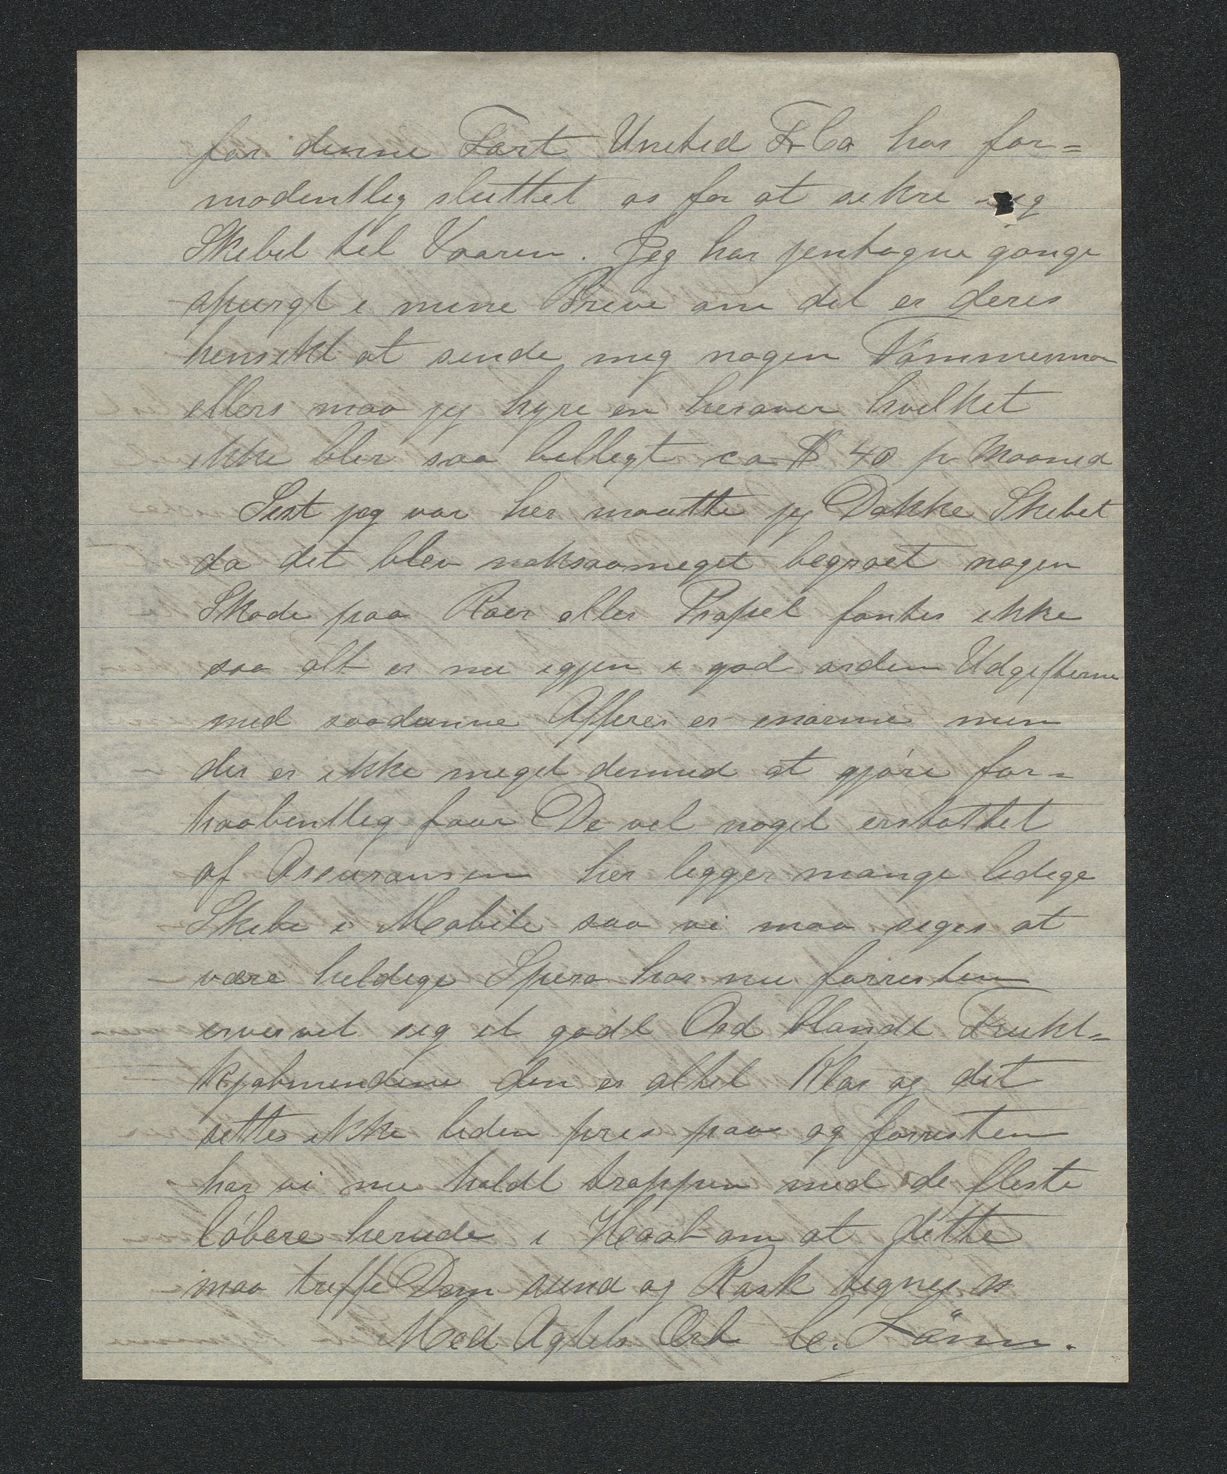 for denne Fart United F. Co har for=
modentlig sluttet os for at sikre sig
Skibet til Vaaren. Jeg har jentagne gange
spurgt i mine Breve om det er deres
hensikt at sende mig nogen Tømmerman
ellers maa jeg hyre en herover hvilket
ikke blir saa billigt ca $ 40 pr Maaned
Sist jeg var her maatte jeg Dokke Skibet
da det blev noksaameget begroet nogen
Skade paa Roer eller Propel fantes ikke
saa alt er nu igjen i god orden Udgifterne
med saadanne Affærer er enorme men
der er ikke meget dermed at gjøre for=
haabentlig faar De vel noget erstattet
af Assuransen her ligger mange ledige
Skibe i Mobile saa vi maa siges at
være heldige Spero har nu forresten
ervervet sig et godt Ord blandt Frukt=
kjøbmendene den er altid Klar og det
settes ikke liden pris paa og forresten
har vi nu holdt trappen med de fleste
løbere herude i Haab om at dette
maa treffe Dem sund og Rask tegnes
Med Agtelse Erb C. Lønn.